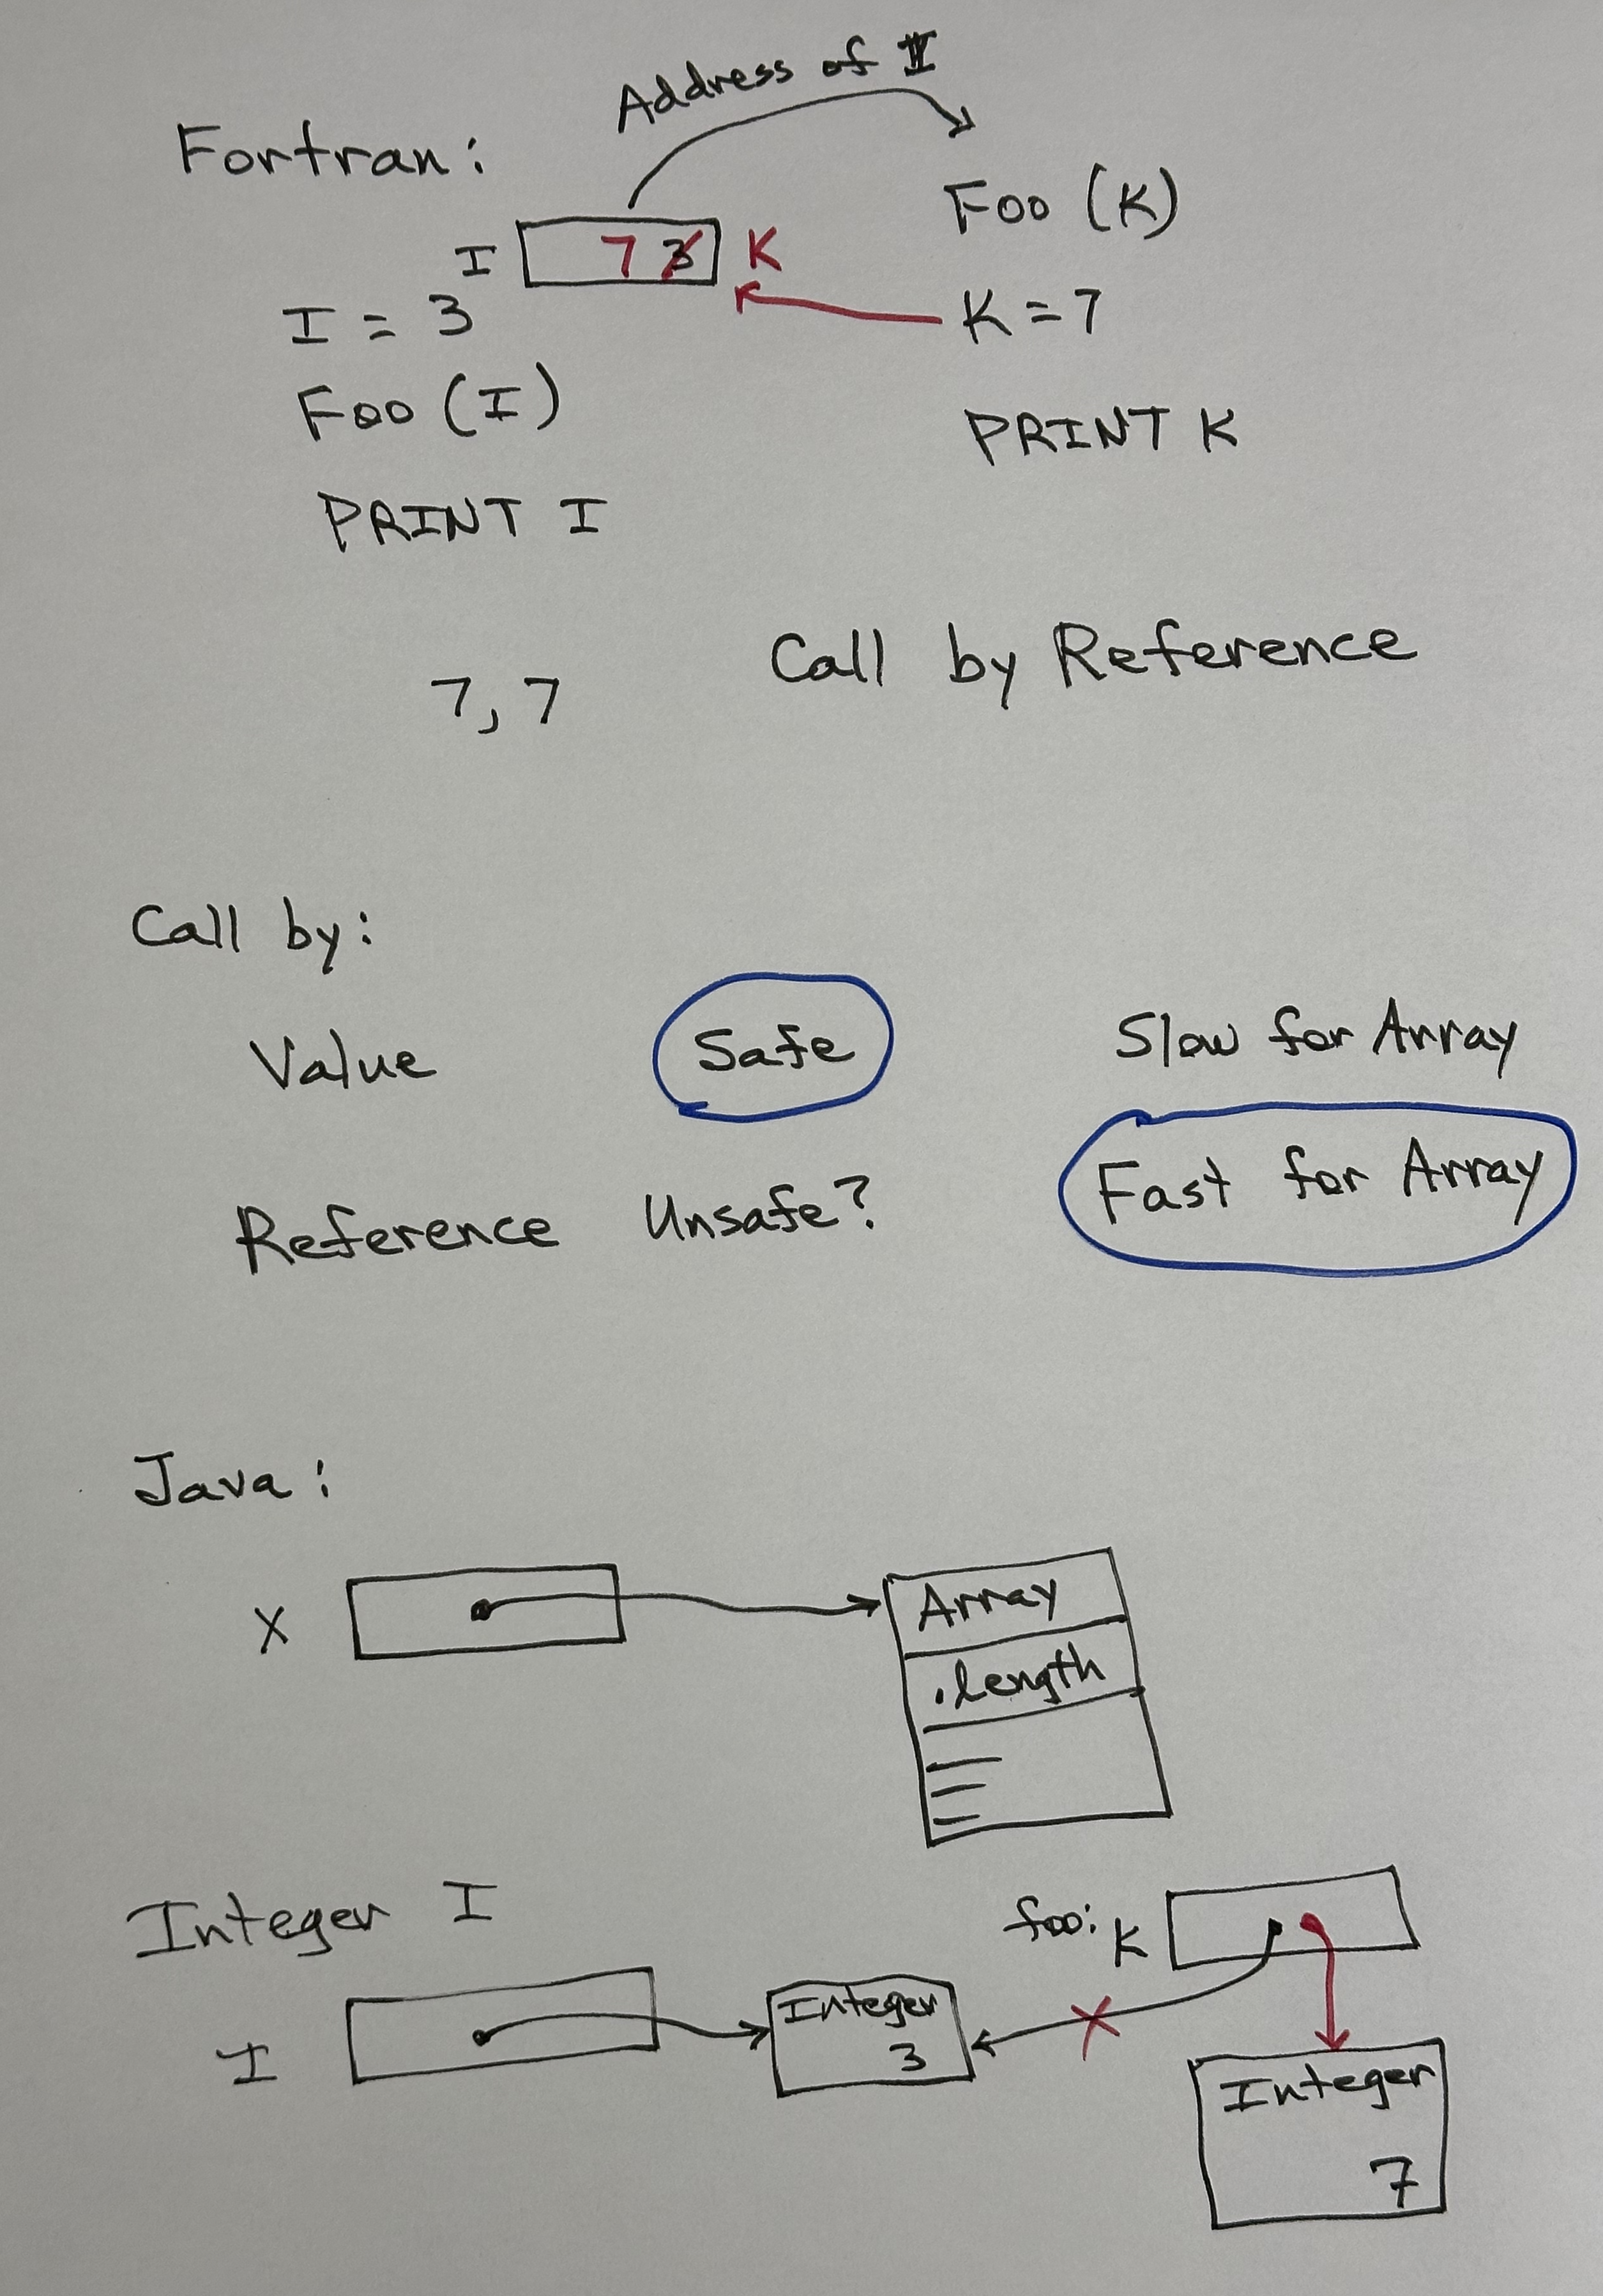 Address of I
Fortran:
Foo (K)
I 7 3 K
I = 3
K = 7
Foo (I)
PRINT K
PRINT I
Call by Reference
7, 7
Call by:
Value Safe Slow for Array
Reference Unsafe? Fast for Array
Java:
X Array
.length
Integer I
foo: K
I Integer
3
Integer
7